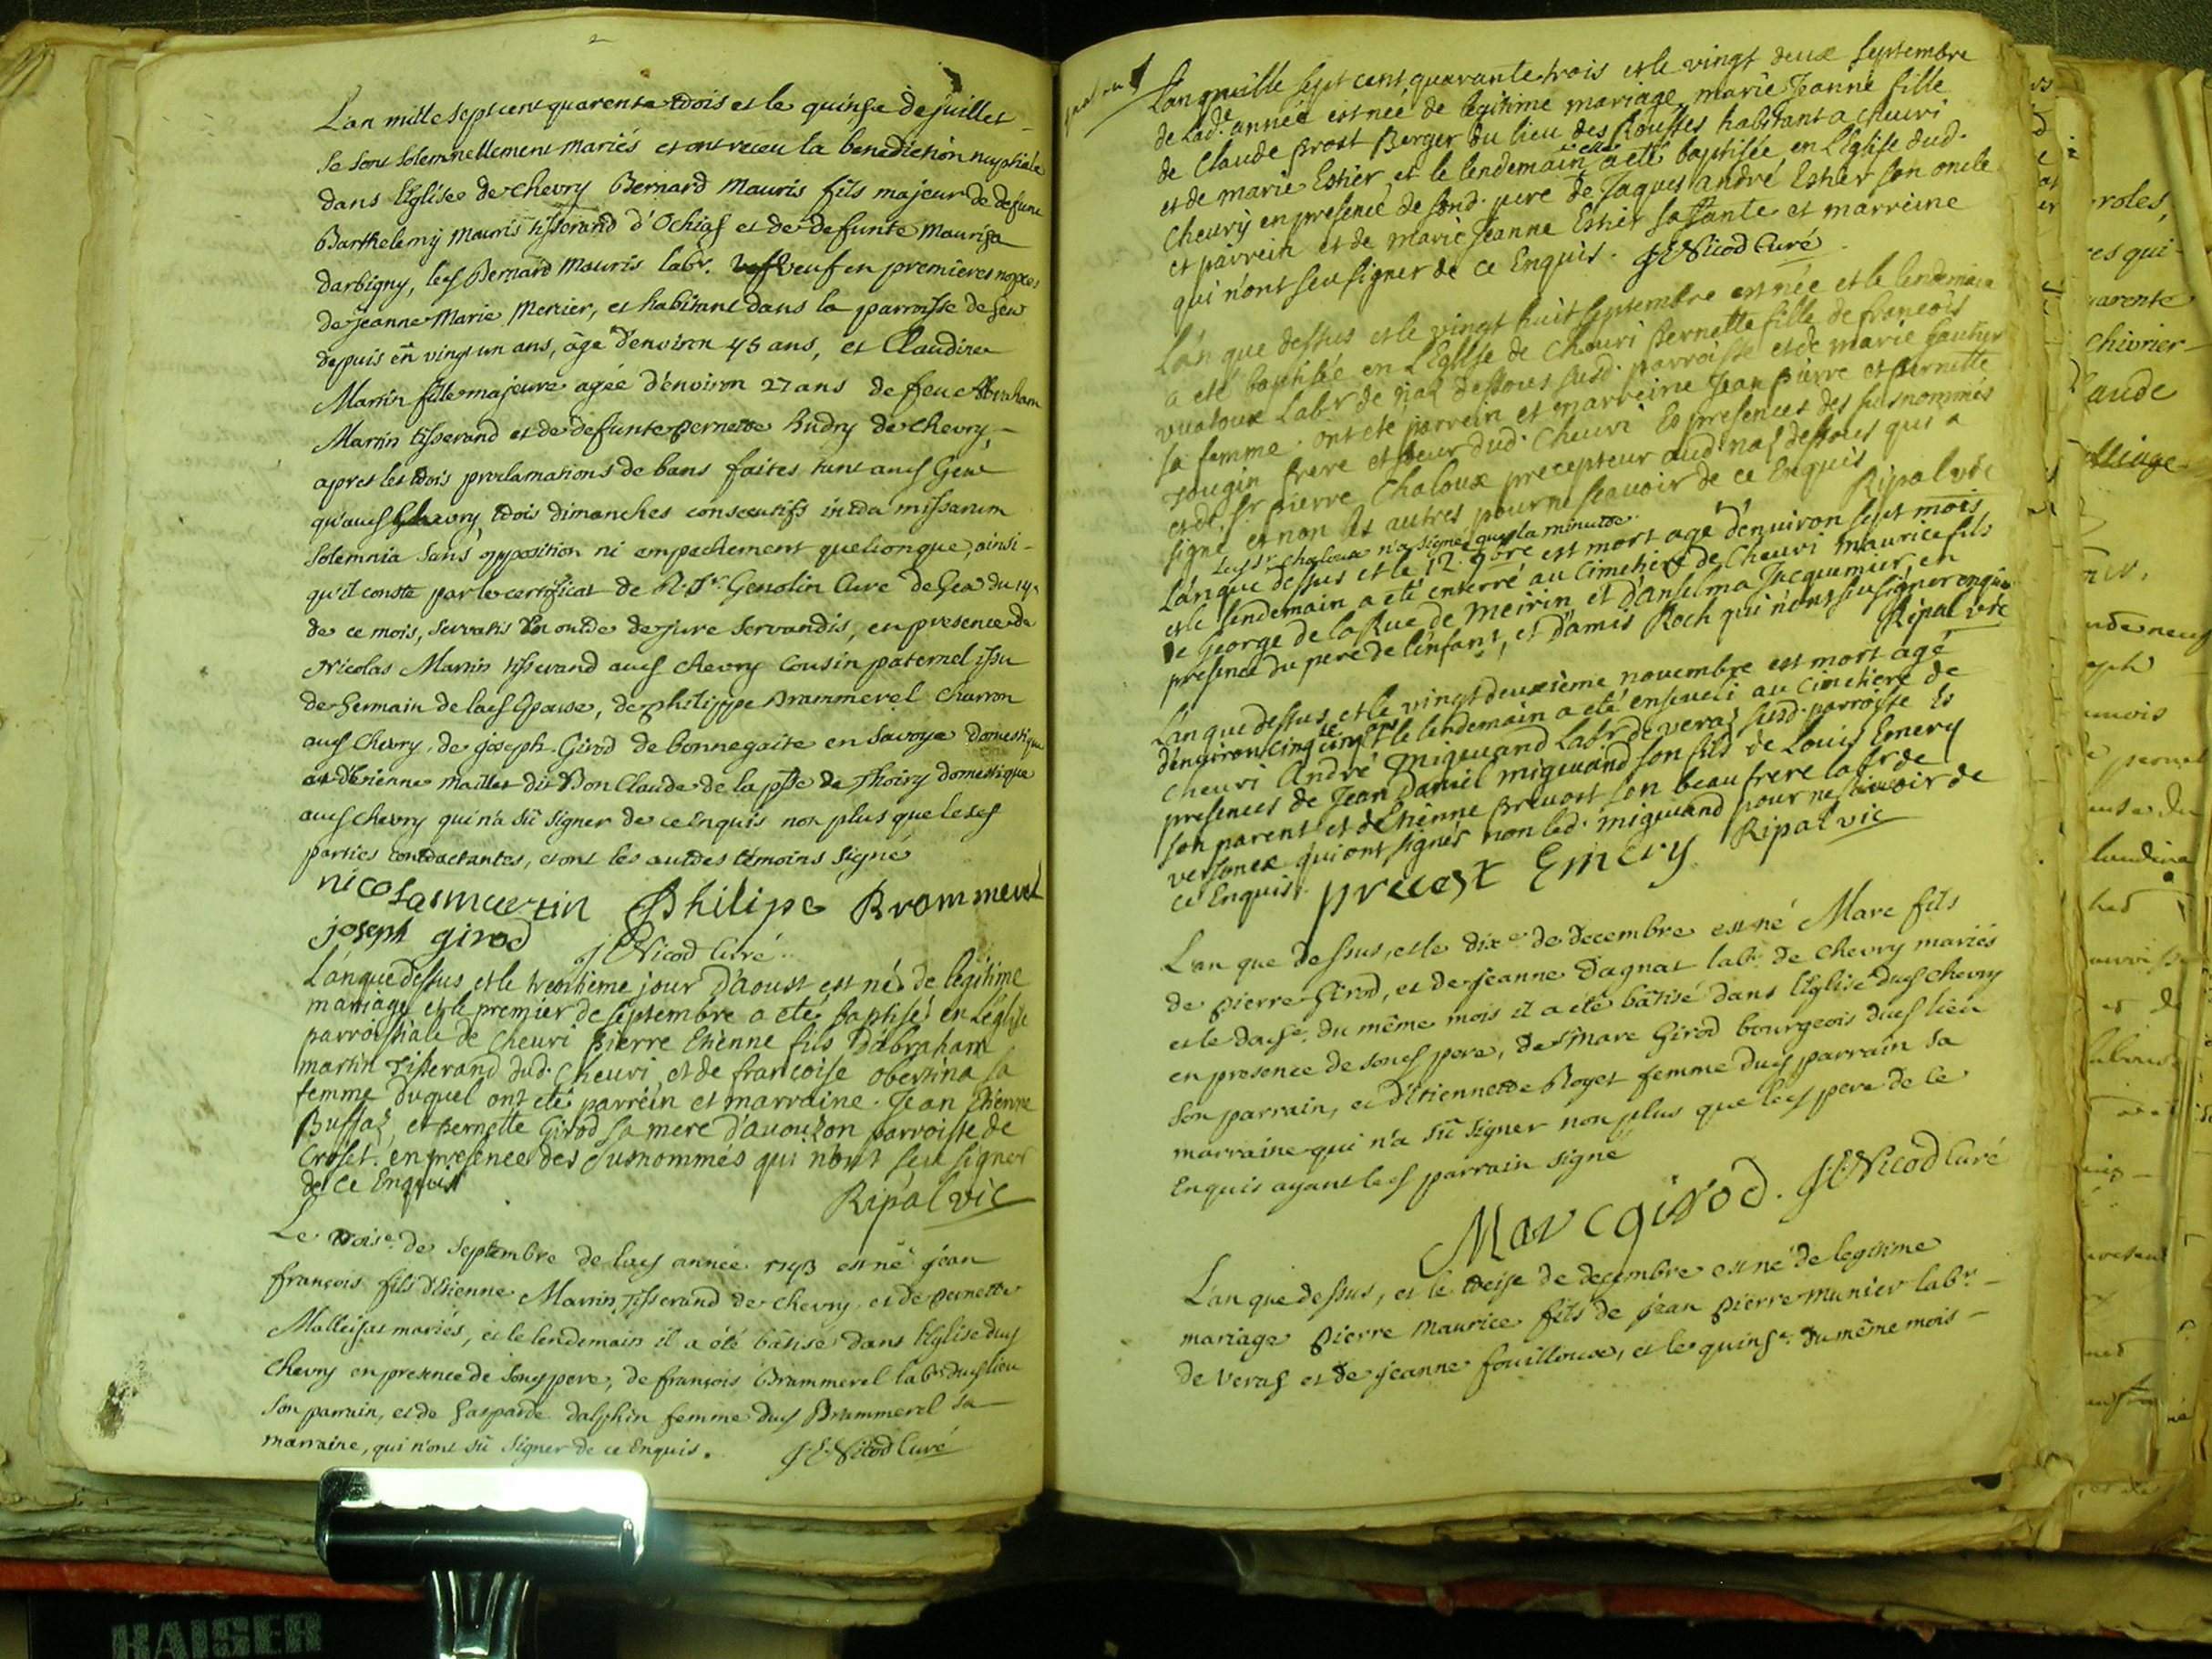 L'an mille sept cent quarente trois et le quinse de juillet
se sont solemnellement mariés et ont receu la benediction nuptiale
dans l'Eglise de Chevry Bernard Mauris fils majeur de defunt
Barthelemy Mauris tisserand d'Ochias et de defunte Mauriza
darbigny, led Bernard Mauris labr. veuf en premieres nopces
de Jeanne Marie Mercier, et habitant dans la parroisse de Gex
depuis en vingt un ans, âgé d'environ 45 ans, et Claudine
Martin fille majeure agée d'environ 27 ans de feu Abraham
Martin tisserand et de defunte pernette hudry de Chevry,
apres les trois proclamations de bans faites tant aud Gex
qu'aud Chevry trois dimanches consecutifs intra missarum
solemnia sans opposition ni empechement quelconque, ainsi
qu'il conste par le certificat de Genolin Curé de Gex du 14e
de ce mois, servatis de jure servandis, en presence de
Nicolas Martin tisserand aud Chevry Cousin paternel issu
de Germain de lad Epouse, de philippe Brammerel Charron
aud Chevry, de joseph Girod de bonnegaite en Savoye domestique
et d'Etienne Maillet dit Bon Claude de la psse de Thoiry domestique
aud Chevry qui n'a sû signer de ce Enquis non plus que lesd
parties contractantes, et ont les autres témoins signé
nicolas martin Philipe Brommerel
joseph girod
J E Nicod Curé
L'an que dessus et le trentième jour d'aoust est né de legitime
mariage et le premier de septembre a eté baptisé en L'eglise
parroissiale de Cheuri Pierre Etienne fils d'abraham
martin Tisserand dud. Cheuri et de francoise obertina sa
femme duquel ont eté parrein et marraine Jean Etienne
Buffaz, et Pernette Girod sa mere d'auouzon parroisse de
Croset. en presence des susnommés qui n'ont seu signer
de ce Enquis
Ripal vic
Le troise. de Septembre de lad année 1743 est né jean
françois fils d'Etienne Martin, Tisserand de Chevry, et de pernette
Malleisat mariés, et le lendemain il a été bâtisé dans l'Eglise dud
Chevry en presence de sond pere, de françois Brammerel labr dud lieu
son parrain, et de Gasparde dalphin femme dud Brammerel sa
marraine, qui n'ont sû signer de ce enquis.
J E Nicod Curé
L'an mille sept cent quarante trois et le vingt deux septembre
de lad.e année est née de legitime mariage marie Jeanne fille
de Claude Prost Berger du lieu des Rousses habitant a Cheuri
et de marie Estier, et le lendemain elle a eté baptisée en l'Eglise dud.
Cheury en presence de sond. pere de Jaques andré Estier son oncle
et parrein et de marie Jeanne Estier sa tante et marreine
qui n'ont seu signer de ce Enquis. J E Nicod Curé
L'an que dessus et le vingt huit septembre est née et le lendemain
a eté baptisée en L'Eglise de Cheuri Pernette fille de francois
vualoux Labr de naz dessous susd. parroisse et de marie Gautier
sa femme. ont eté parrein et marreine Jean Pierre et Pernette
Tougin frere et soeur dud. Cheuri Es presences des susnommés
et de Sr. pierre Chaloux precepteur aud. naz dessous qui a
signé et non les autres pour ne scavoir de ce Enquis
Ripal vic
led Sr. Chaloux n'a signé que la minute.
L'an que dessus et le 12. 9bre est mort agé d'enuiron sept mois
et le lendemain a eté enterré au Cimetiere de Cheuri Maurice fils
de George de la Rue de Meirin et d'anselma Jacquemier, en
presence du pere de l'enfant, et d'amis Roch qui n'ont seu signer enquis
Ripal vic
L'an que dessus et le vingt deuxième novembre est mort agé
d'enuiron cinquante cinq ans et le lendemain a eté enseueli au Cimetiere de
Cheuri André migueand Labr. de veraz susd. parroisse Es
presences de Jean Daniel migueand son fils de Louis Emery
son parent et d'Etienne Prevost son beau frere labr de
versonex qui ont signés non led. migueand pour ne scavoir de
ce Enquis. prevost Emery Ripal vic
L'an que dessus, et le dixe. de decembre est né Marc fils
de pierre Girod, et de jeanne Dagnat labr. de Chevry mariés
et le douse. du même mois il a eté bâtisé dans l'Eglise dud Chevry
en presence de sond pere, de Sr Marc Girod bourgeois dud lieu
son parrain, et d'Etiennette Royet femme dud parrain sa
marraine qui n'a sû signer non plus que led pere de ce
Enquis ayant led parrain signé
Marc girod. J E Nicod Curé
L'an que dessus, et le treise de decembre est né de legitime
mariage pierre Maurice fils de jean pierre Munier labr.
de Veraz et de jeanne fouilloux, et le quinse. du même mois
roles,
es qui
arente
chivrier
aude
KAISER